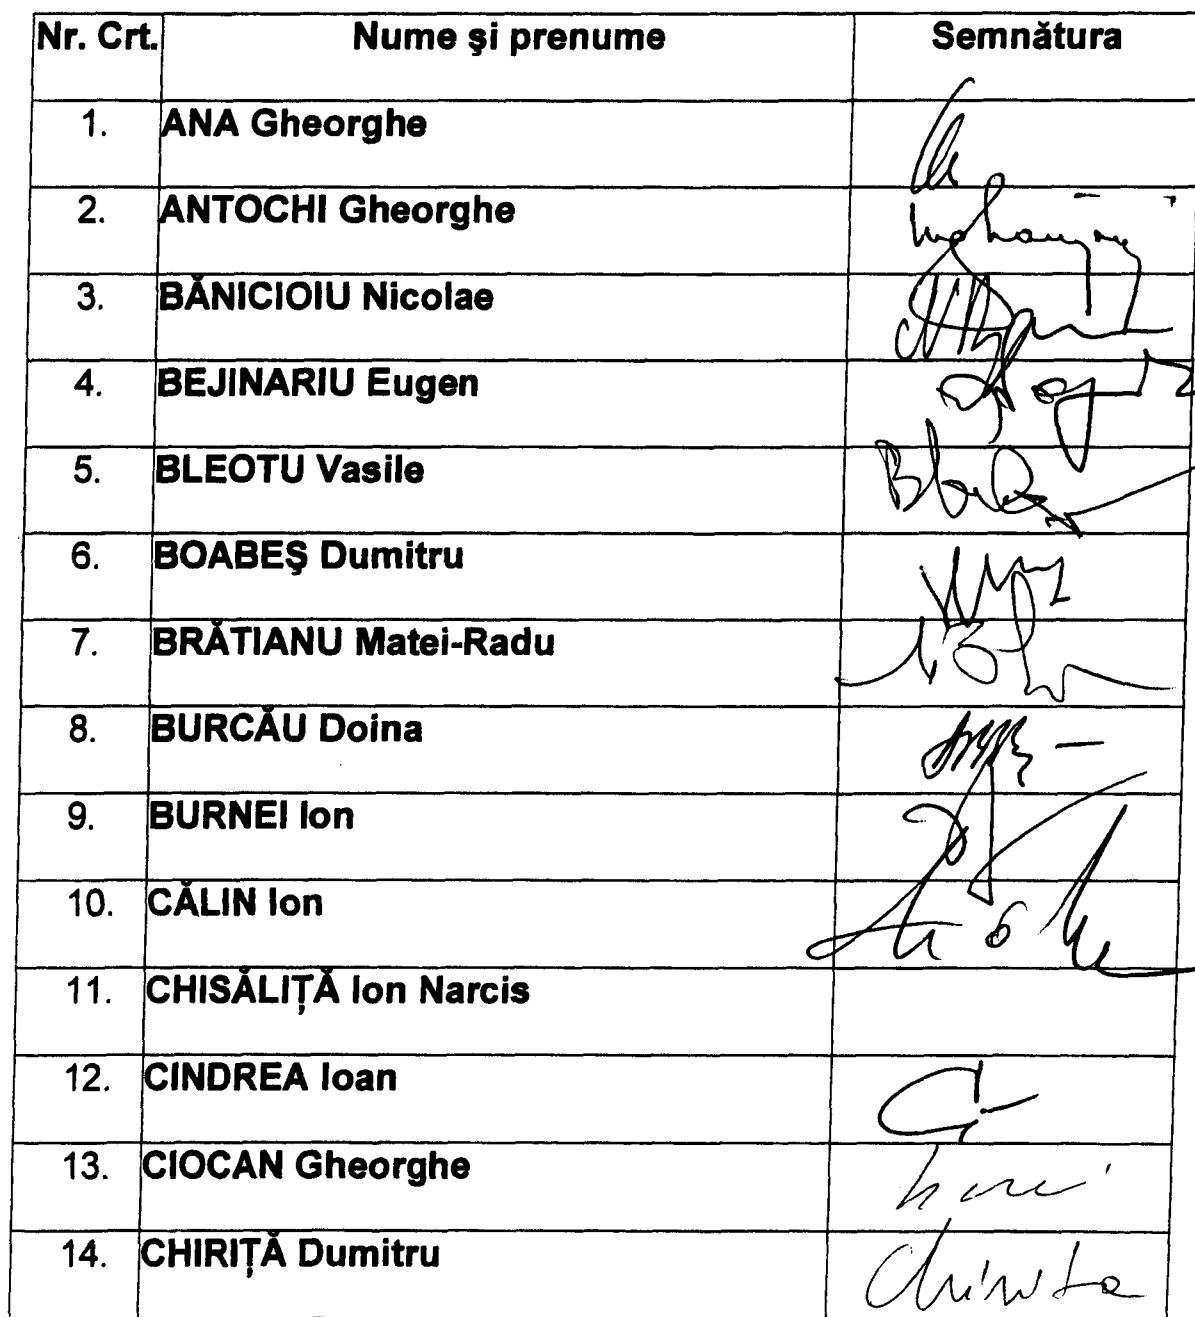 Nr. Crt. Nume şi prenume Semnătura
1. ANA Gheorghe
2. ANTOCHI Gheorghe
3. BĂNICIOIU Nicolae
4. BEJINARIU Eugen
5. BLEOTU Vasile
6. BOABEŞ Dumitru
7. BRĂTIANU Matei-Radu
8. BURCĂU Doina
9. BURNEI Ion
10. CĂLIN Ion
11. CHISĂLIŢĂ Ion Narcis
12. CINDREA Ioan
13. CIOCAN Gheorghe
14. CHIRIŢĂ Dumitru Chirita